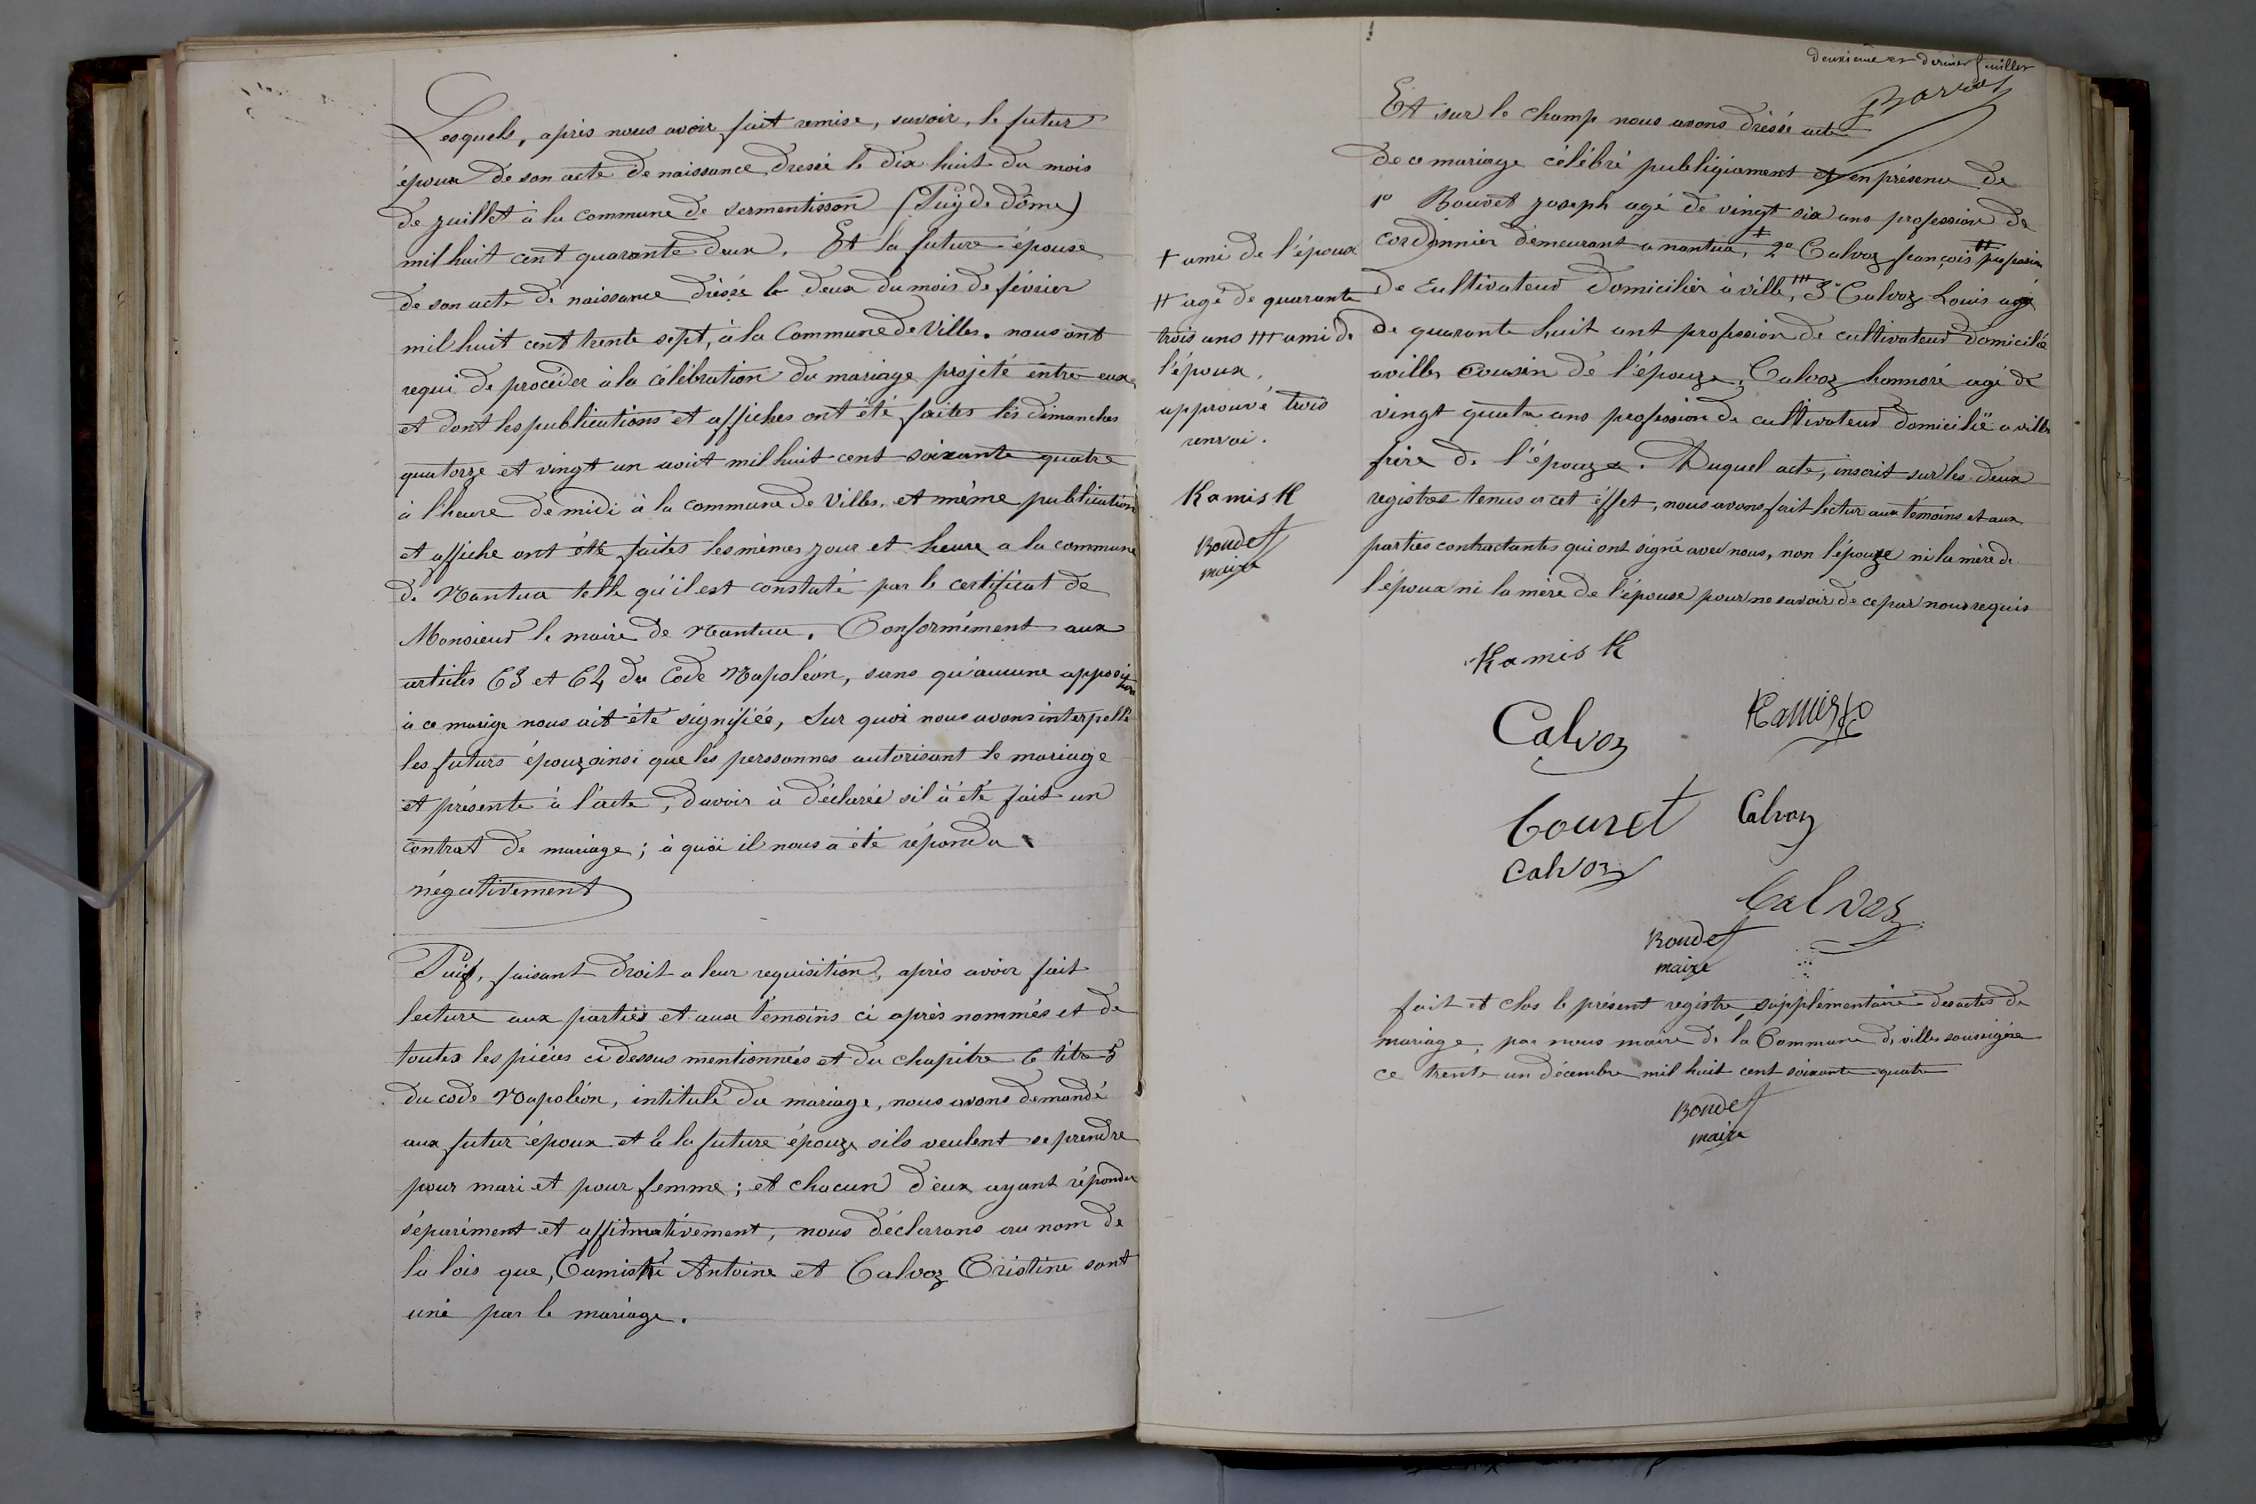 Lesquels, après nous avoir fait remise, savoir, le futur
époux de son acte de naissance dressé le dix huit du mois
de juillet à la commune de sermentisson (Puy de dôme)
mil huit cent quarante deux. Et la future épouse
de son acte de naissance dréssé le deux du mois de février
mil huit cent trente sept, à la Commune de Villes. nous ont
requi de procéder à la célébration du mariage projété entre eux
et dont les publications et affiches ont été faites les dimanches
quatorze et vingt un août mil huit cent soixante quatre
à l'heure de midi à la commune de Villes, et même publication
et affiche ont été faites les mêmes jour et heure a la commune
de Nantua telle qu'il est constaté par le certificat de
Monsieur le maire de Nantua. Conformément aux
articles 63 et 64 du Code Napoléon, sans qu'aucune apposition
à ce marige nous ait été signifiée, Sur quoi nous avons interpellé
les futurs épouz ainsi que les perssonnes autorisant le mariage
et présente à l'acte, d'avoir à déclarée s'il à été fait un
contrat de mariage; à quoi il nous a été répondu
négativement
Puis, faisant droit a leur requisition, après avoir fait
lecture aux parties et aux témoins ci après nommés et de
toutes les pièces ci dessus mentionnées et du chapitre 6 titre 5
du code Napoléon, intitulé du mariage, nous avons demandé
aux futur époux et à la future épouze s'ils veulent se prendre
pour mari et pour femme; et chacun d'eux ayant répondu
séparément et affirmativement, nous déclarrons au nom de
la lois que, Camiské Antoine et Calvoz Cristine sont
unie par le mariage.
deuxième et dernier feuillet
Barrat
Et sur le champ nous avons dréssé acte
de ce mariage célébré publiqiament et en présence de
1º Bouvet joseph agé de vingt six ans profession de
cordonnier demeurant a nantua, + 2º Calvoz françois ++ profession
de Cultivateur domicilier à ville, +++ 3º Calvoz Louis agé
de quarante huit ant profession de cultivateur domicilié
a villes cousin de l'épouze, Calvoz honnoré agé de
vingt quatre ans profession de cultivateur domicilié a villes
frère de l'épouze. Duquel acte, inscrit sur les deux
registres tenus a cet éffet, nous avons fait lectur aux témoins et aux
parties contractantes qui ont signé avec nous, non l'épouze ni la mère de
l'époux ni la mère de l'épouse pour ne savoir de ce par nous requis
+ ami de l'époux
++ agé de quarante
trois ans +++ ami de
l'époux.
approuvé trois
renvoi.
Kamisk
Bondet
maire
Kamisk
Calvoz
Kamisk
Bouvet
Calvoz
Calvoz
Calvoz
Bondet
maire
fait et clos le présent registre supplémentaire des actes de
mariage, par nous maire de la Commune de villes soussigné
ce trente un décembre mil huit cent soixante quatre
Bondet
maire